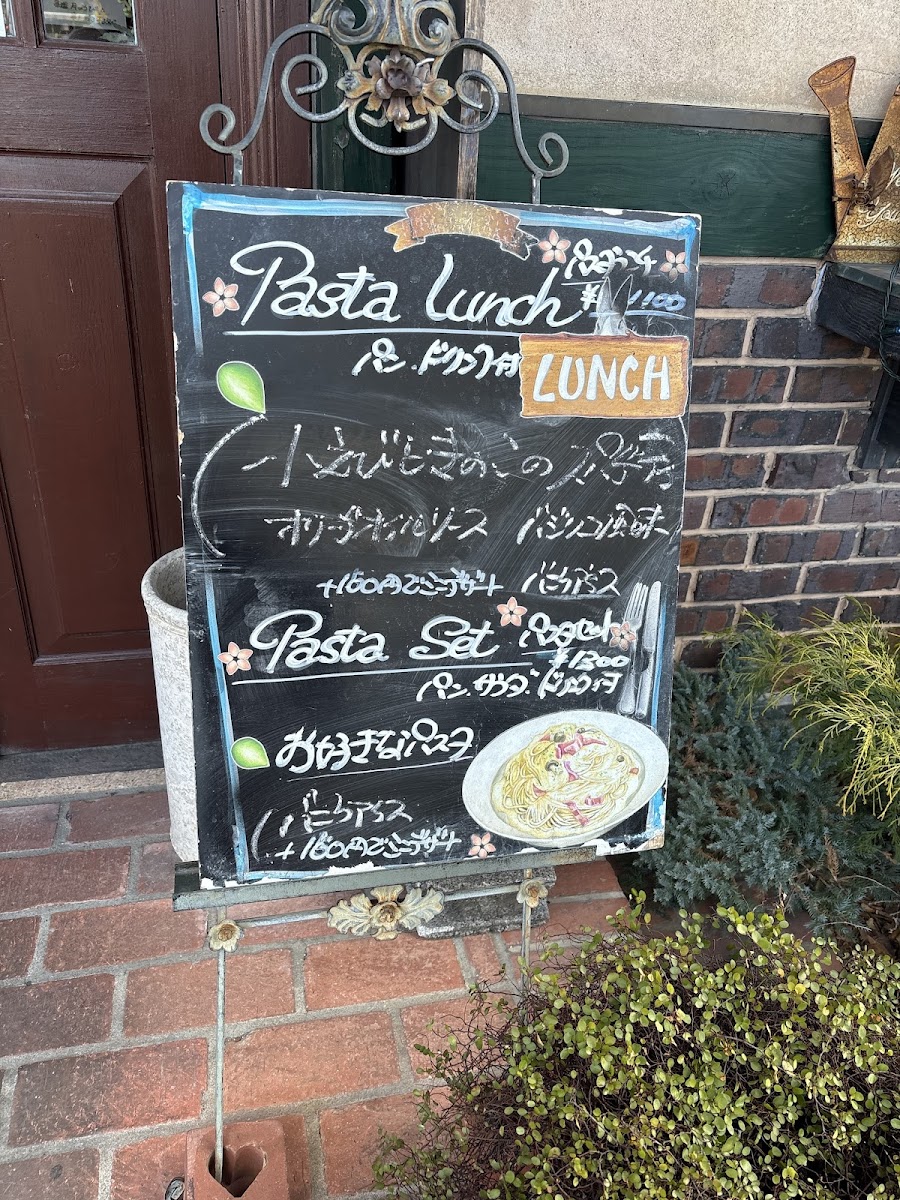 Pasta Lunch
¥1100
パン・ドリンク付
LUNCH
小えびときのこの
オリーブオイルソース バジリコ風味
+150円でミニデザート バニラアイス
Pasta Set パスタセット
¥1300
パン、サラダ、ドリンク付
お好きなパスタ
バニラアイス
+150円でミニデザート